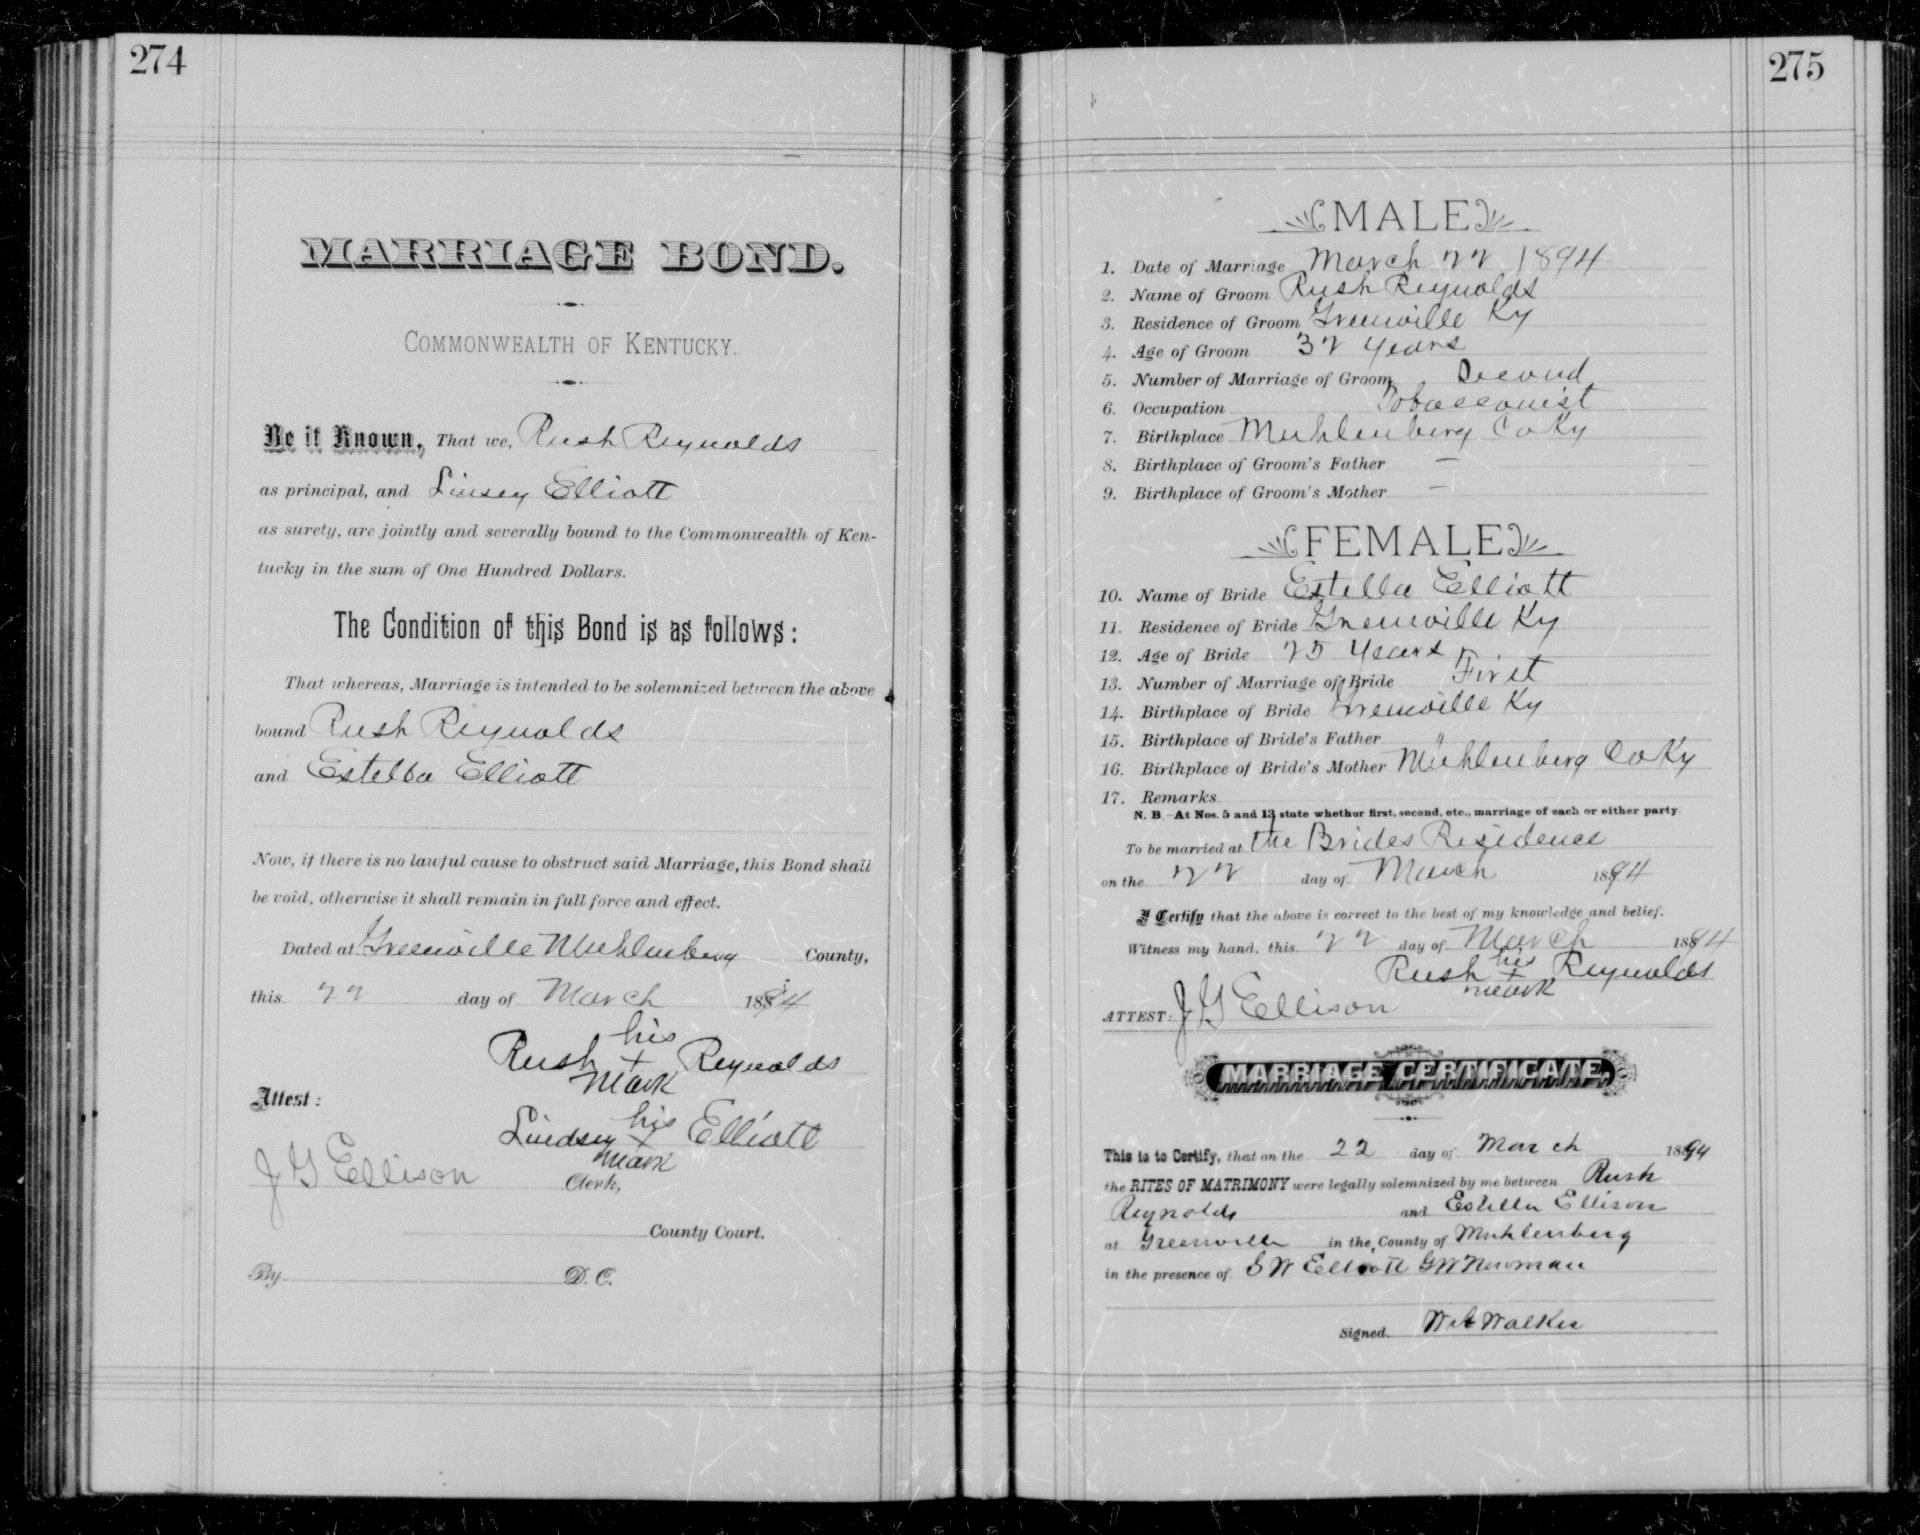 274
MARRIAGE BOND.
COMMONWEALTH OF KENTUCKY.
Be it Known, That we, Rush Reynolds
as principal, and Linsey Elliott
as surety, are jointly and severally bound to the Commonwealth of Ken-
tucky in the sum of One Hundred Dollars.
The Condition of this Bond is as follows:
That whereas, Marriage is intended to be solemnized between the above
bound Rush Reynolds
and Estella Elliott
Now, if there is no lawful cause to obstruct said Marriage, this Bond shall
be void, otherwise it shall remain in full force and effect.
Dated at Greenville Muhlenberg County,
this 22 day of March 1894
his
Rush + Reynolds
mark
Attest:
his
Lindsey + Elliott
mark
J G Ellison
Clerk,
County Court.
By D. C.
275
MALE
1. Date of Marriage March 22 1894
2. Name of Groom Rush Reynolds
3. Residence of Groom Greenville Ky
4. Age of Groom 32 years
5. Number of Marriage of Groom Second
6. Occupation Tobacconist
7. Birthplace Muhlenberg Co Ky
8. Birthplace of Groom's Father —
9. Birthplace of Groom's Mother —
FEMALE
10. Name of Bride Estella Elliott
11. Residence of Bride Greenville Ky
12. Age of Bride 25 years
13. Number of Marriage of Bride First
14. Birthplace of Bride Greenville Ky
15. Birthplace of Bride's Father "
16. Birthplace of Bride's Mother Muhlenberg Co Ky
17. Remarks
N. B.—At Nos. 5 and 13 state whether first, second, etc., marriage of each or either party
To be married at the Brides Residence
on the 22 day of March 1894
I Certify that the above is correct to the best of my knowledge and belief.
Witness my hand, this 22 day of March 1894
his
Rush + Reynolds
mark
ATTEST: J G Ellison
MARRIAGE CERTIFICATE.
This is to Certify, that on the 22 day of March 1894
the RITES OF MATRIMONY were legally solemnized by me between Rush
Reynolds and Estella Ellison
at Greenville in the County of Muhlenberg
in the presence of S W Elliott G W Newman
Signed. Walker